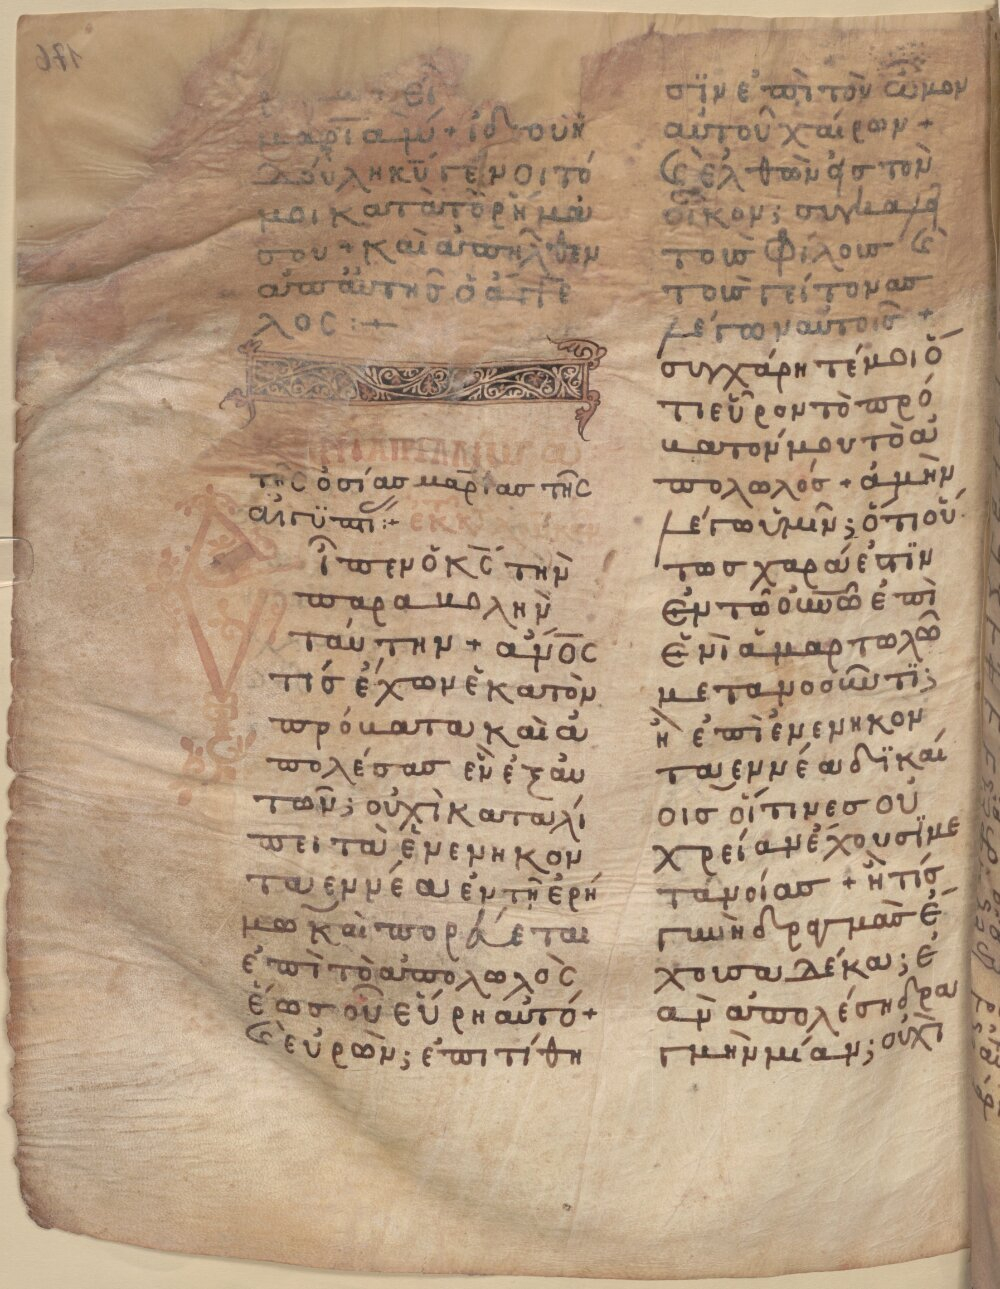 μαρϊάμ + ἰδοὺ ἡ
δούλη κ̅υ̅ γένοιτό
μοι κατὰ τὸ ῥῆμά
σου + καὶ ἀπῆλθεν
ἀπ' αὐτῆς ὁ ἄγγε
λος :+
ΜΗΝΙ ΑΠΡΙΛΛΙΩ α
τῆς ὁσίας μαρίας τῆς
αἰγϋπτί:+
ἶπεν ὁ κ̅ς̅ τὴν
παραβολὴν
ταύτην + ἄν̅ο̅ς̅
τίσ ἔχων ἑκατὸν
πρόβατα καὶ ἀ
πολέσασ ἓν ἐξ αὐ
τῶν; οὐχὶ καταλί
πει τὰ ἐνενηκον
ταεννέα ἐν τῇ ἐρή
μω καὶ πορεύεται
ἐπὶ τὸ ἀπολωλὸς
ἕωσ οὗ εὕρη αὐτό +
καὶ εὑρὼν; ἐπιτίθη
σϊν ἐπὶ τὸν ὦμον
αὐτοῦ χαίρων +
καὶ ἐλθὼν εἰσ τὸν
οἶκον; συγκαλεῖ
τοὺσ φίλουσ καὶ
τοὺσ γείτονασ
λέγων αὐτοῖσ +
συγχάρητέ μοι ὅ
τι εὗρον τὸ πρό
βατόν μου τὸ ἀ
πολωλόσ + ἀμὴν
λέγω ὑμῖν; ὅτι οὕ
τωσ χαρὰ ἐστϊν
ἐν τῶ ο̅υ̅ν̅ω̅ ἐπὶ
ἑνὶ ἁμαρτωλῶ
μετανοοῦντϊ;
ἢ ἐπὶ ἐνενηκον
ταεννέα δϊκαί
οισ οἵτινεσ οὐ
χρείαν ἔχουσϊ με
τανοίασ + ἢ τίσ
γυνὴ δραγμὰσ ἔ
χουσα δέκα; ἐ
ὰν ἀπολέση δρα
γμὴν μίαν; οὐχὶ